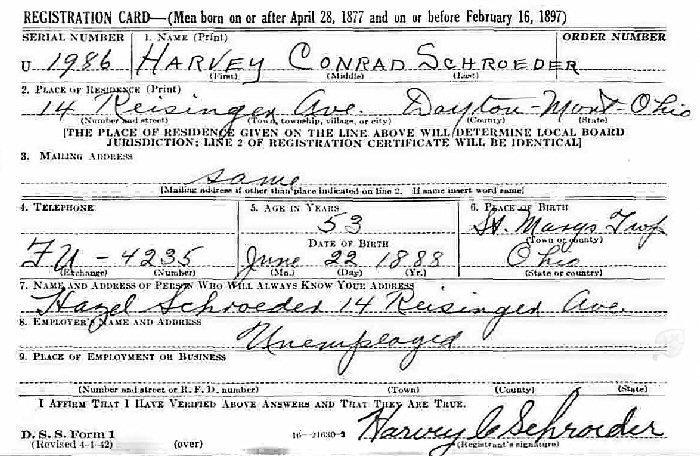 REGISTRATION CARD—(Men born on or after April 28, 1877 and on or before February 16, 1897)
SERIAL NUMBER 1. NAME (Print) ORDER NUMBER
U 1986 HARVEY CONRAD SCHROEDER
(First) (Middle) (Last)
2. PLACE OF RESIDENCE (Print)
14 Reisinger Ave. Dayton-Mont-Ohio
(Number and street) (Town, township, village, or city) (County) (State)
[THE PLACE OF RESIDENCE GIVEN ON THE LINE ABOVE WILL DETERMINE LOCAL BOARD
JURISDICTION; LINE 2 OF REGISTRATION CERTIFICATE WILL BE IDENTICAL]
3. MAILING ADDRESS
same
[Mailing address if other than place indicated on line 2. If same insert word same]
4. TELEPHONE 5. AGE IN YEARS 6. PLACE OF BIRTH
53 St. Marys Twp
DATE OF BIRTH (Town or county)
FU - 4235 June 22 1888 Ohio
(Exchange) (Number) (Mo.) (Day) (Yr.) (State or country)
7. NAME AND ADDRESS OF PERSON WHO WILL ALWAYS KNOW YOUR ADDRESS
Hazel Schroeder 14 Reisinger Ave.
8. EMPLOYER'S NAME AND ADDRESS
Unemployed
9. PLACE OF EMPLOYMENT OR BUSINESS
(Number and street or R. F. D. number) (Town) (County) (State)
I AFFIRM THAT I HAVE VERIFIED ABOVE ANSWERS AND THAT THEY ARE TRUE.
D. S. S. Form 1 Harvey C Schroeder
(Revised 4-1-42) (over) 16—21630-2 (Registrant's signature)